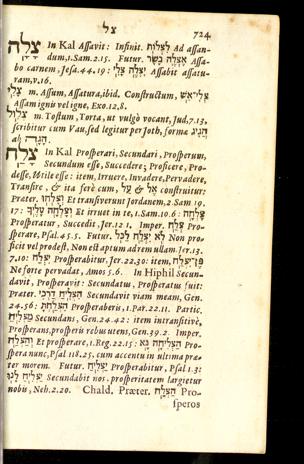 צל 724
צָלָה In Kal Assavit: Infinit. לִצְלוֹת Ad assan-
dum, 1.Sam.2.15. Futur. אֶצְלֶה בָשָׂר Assa-
bo carnem, Jesa.44.19: יִצְלֶה צָלִי Assabit assatu-
ram, v.16.
צָלִי m. Assum, Assatura, ibid. Constructum, צְלִי־אֵשׁ
Assam igni vel igne, Exo.12.8.
m. Tostum, Torta, ut vulgò vocant, Jud.7.13.
scribitur cum Vau, sed legitur per Joth, forma
ab
צָלַח In Kal Prosperari, Secundari, Prosperum,
Secundum esse, Succedere; Proficere, Pro-
desse, Utile esse: item, Irruere, Invadere, Pervadere,
Transire, & ita ferè cum, עַל & אֶל construitur:
Præter. וְצָלְחוּ Et transiverunt Jordanem, 2 Sam. 19.
17: וְצָלְחָה עָלֶיךָ Et irruet in te, 1. Sam. 10.6: צָלֵחָה
Prosperatur, Succedit, Jer.12.1. Imper. צְלַח Pro-
sperare, Psal.45.5. Futur. לֹא יִצְלַח לַכֹּל Non pro-
ficit vel prodest, Non est aptum ad rem ullam. Jer.13.
7,10: יִצְלַח Prosperabitur, Jer.22.30: item, פֶּן־יִצְלַח
Ne forte pervadat, Amos 5.6. In Hiphil Secun-
davit, Prosperavit: Secundatus, Prosperatus fuit:
Præter. הִצְלִיחַ דַּרְכִּי Secundavit viam meam, Gen.
24.56: Prosperaberis, 1.Par.22.11. Partic.
מַצְלִיחַ Secundans, Gen.24.42: item intransitivè,
Prosperans, prosperis rebus utens, Gen.39.2. Imper.
Et prosperare, 1.Reg.22.15: הַצְלִיחָה נָּא Pro-
spera nunc, Psal 118.25. cum accentu in ultima præ-
ter morem. Futur. יַצְלִיחַ Prosperabitur, Psal 1.3:
יַצְלִיחַ לָנוּ Secundabit nos, prosperitatem largietur
nobis, Neh.2.20. Chald. Præter. הַצְלַח Pro-
speros